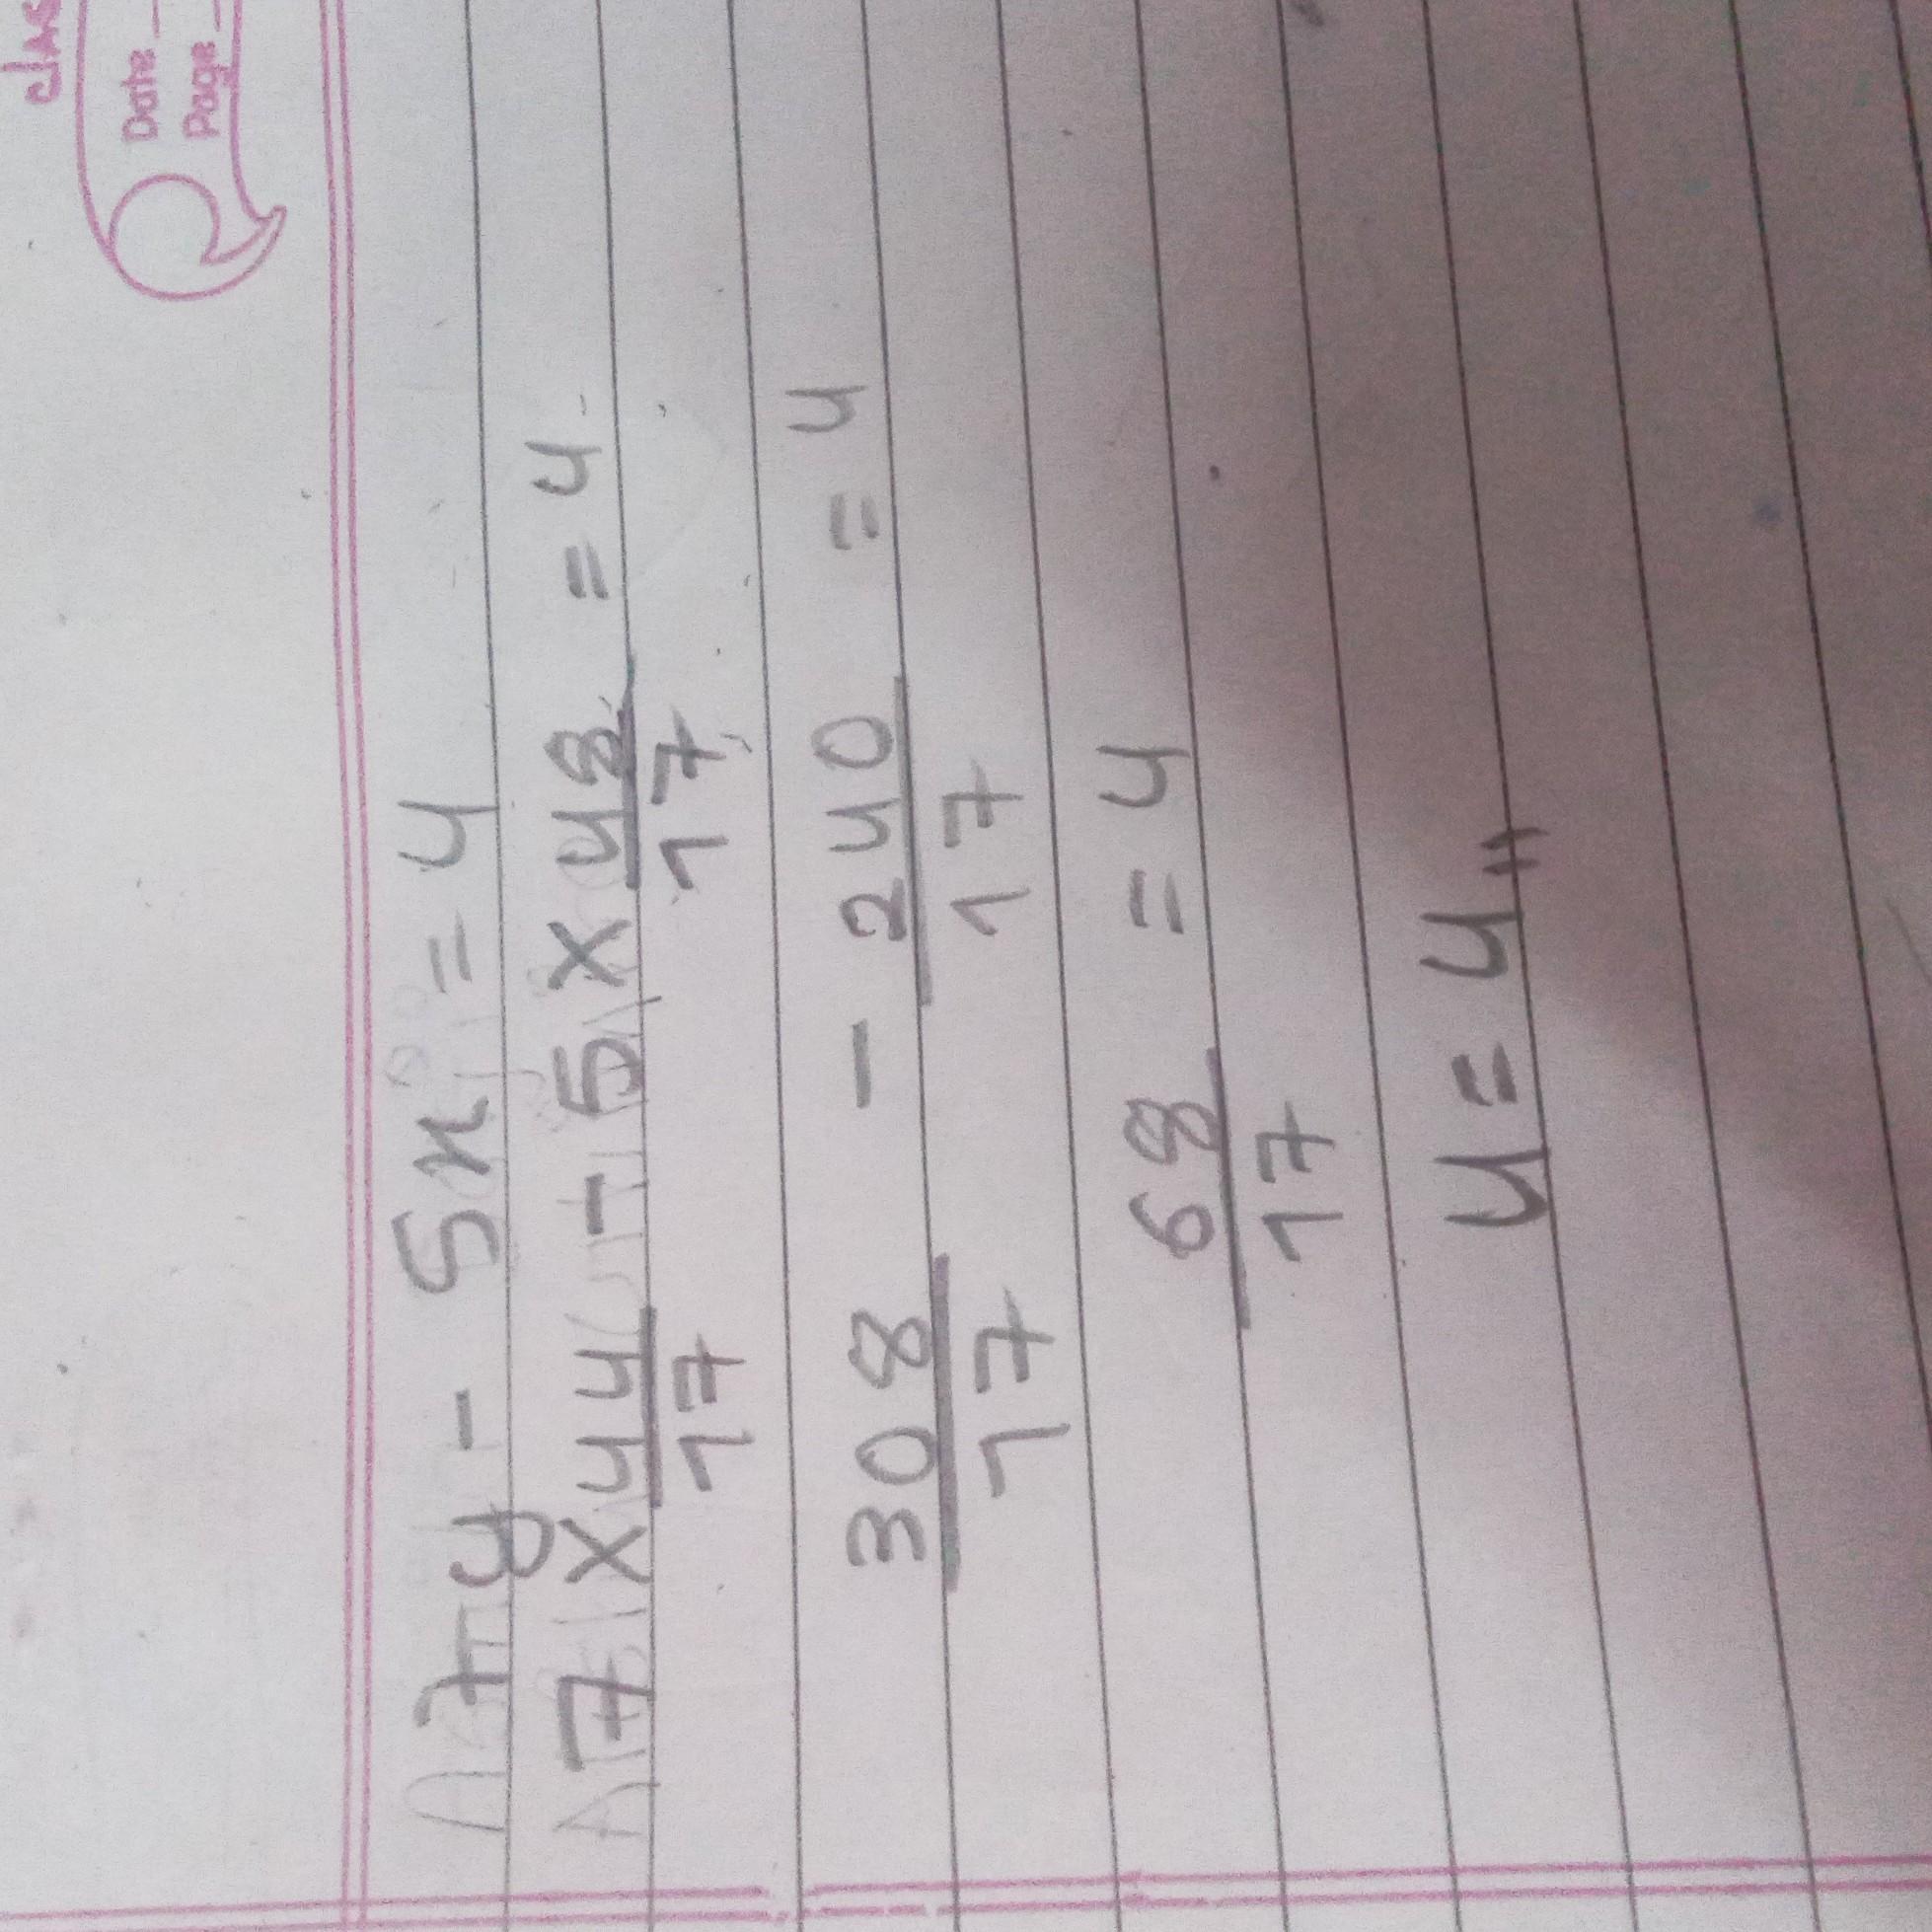 clas
Date
Page
7y - 5x = 4
7 x 44/17 - 5 x 48/17 = 4
308/17 - 240/17 = 4
68/17 = 4
4 = 4 "